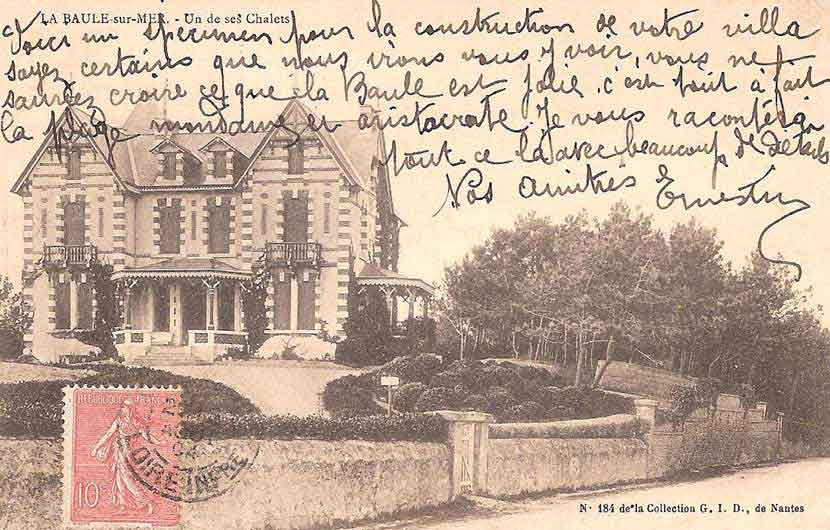 LA BAULE-sur-MER. - Un de ses Chalets
Voici un spécimen pour la construction de votre villa
soyez certains que nous irons vous y voir, vous ne
sauriez croire ce que la Baule est jolie c'est tout à fait
la plage mondaine et aristocrate. Je vous raconterai
tout ce la avec beaucoup de détails
Nos amitiés
Ernestine
REPUBLIQUE FRANÇAISE
10c
LOIRE INFRE
N° 184 de la Collection G. I. D., de Nantes